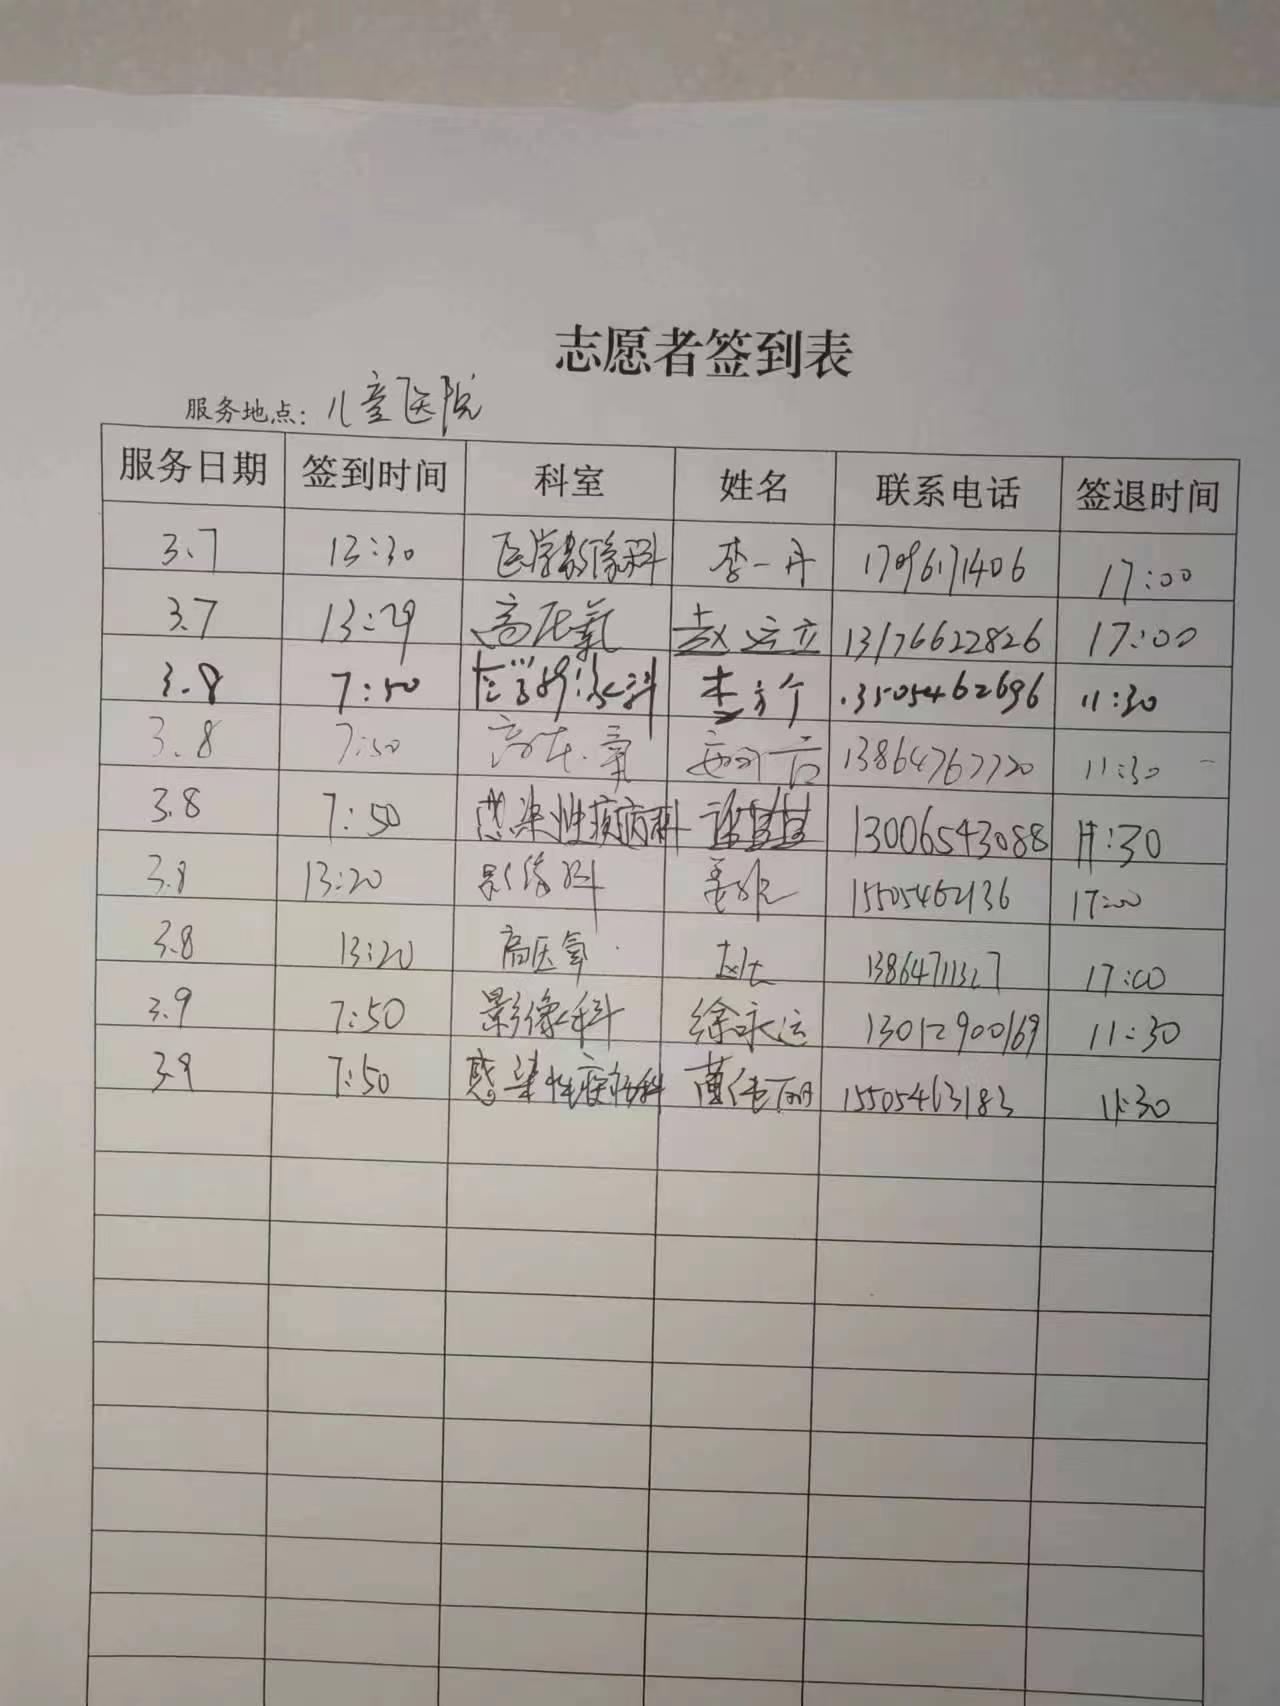 志愿者签到表
服务地点：儿童医院
服务日期 签到时间 科室 姓名 联系电话 签退时间
3.7 13:30 医学影像科 李一丹 17:00
3.7 13:29 高压氧 赵运立 13176622826 17:00
3.8 7:50 11:30
3.8 7:50 高压氧 13864767720 11:30
3.8 7:50 感染性疾病科 13006543088 11:30
3.8 13:20 影像科 15505462136 17:00
3.8 13:20 高压氧 13864711327 17:00
3.9 7:50 影像科 徐永运 13012900169 11:30
3.9 7:50 感染性疾病科 15505463183 11:30